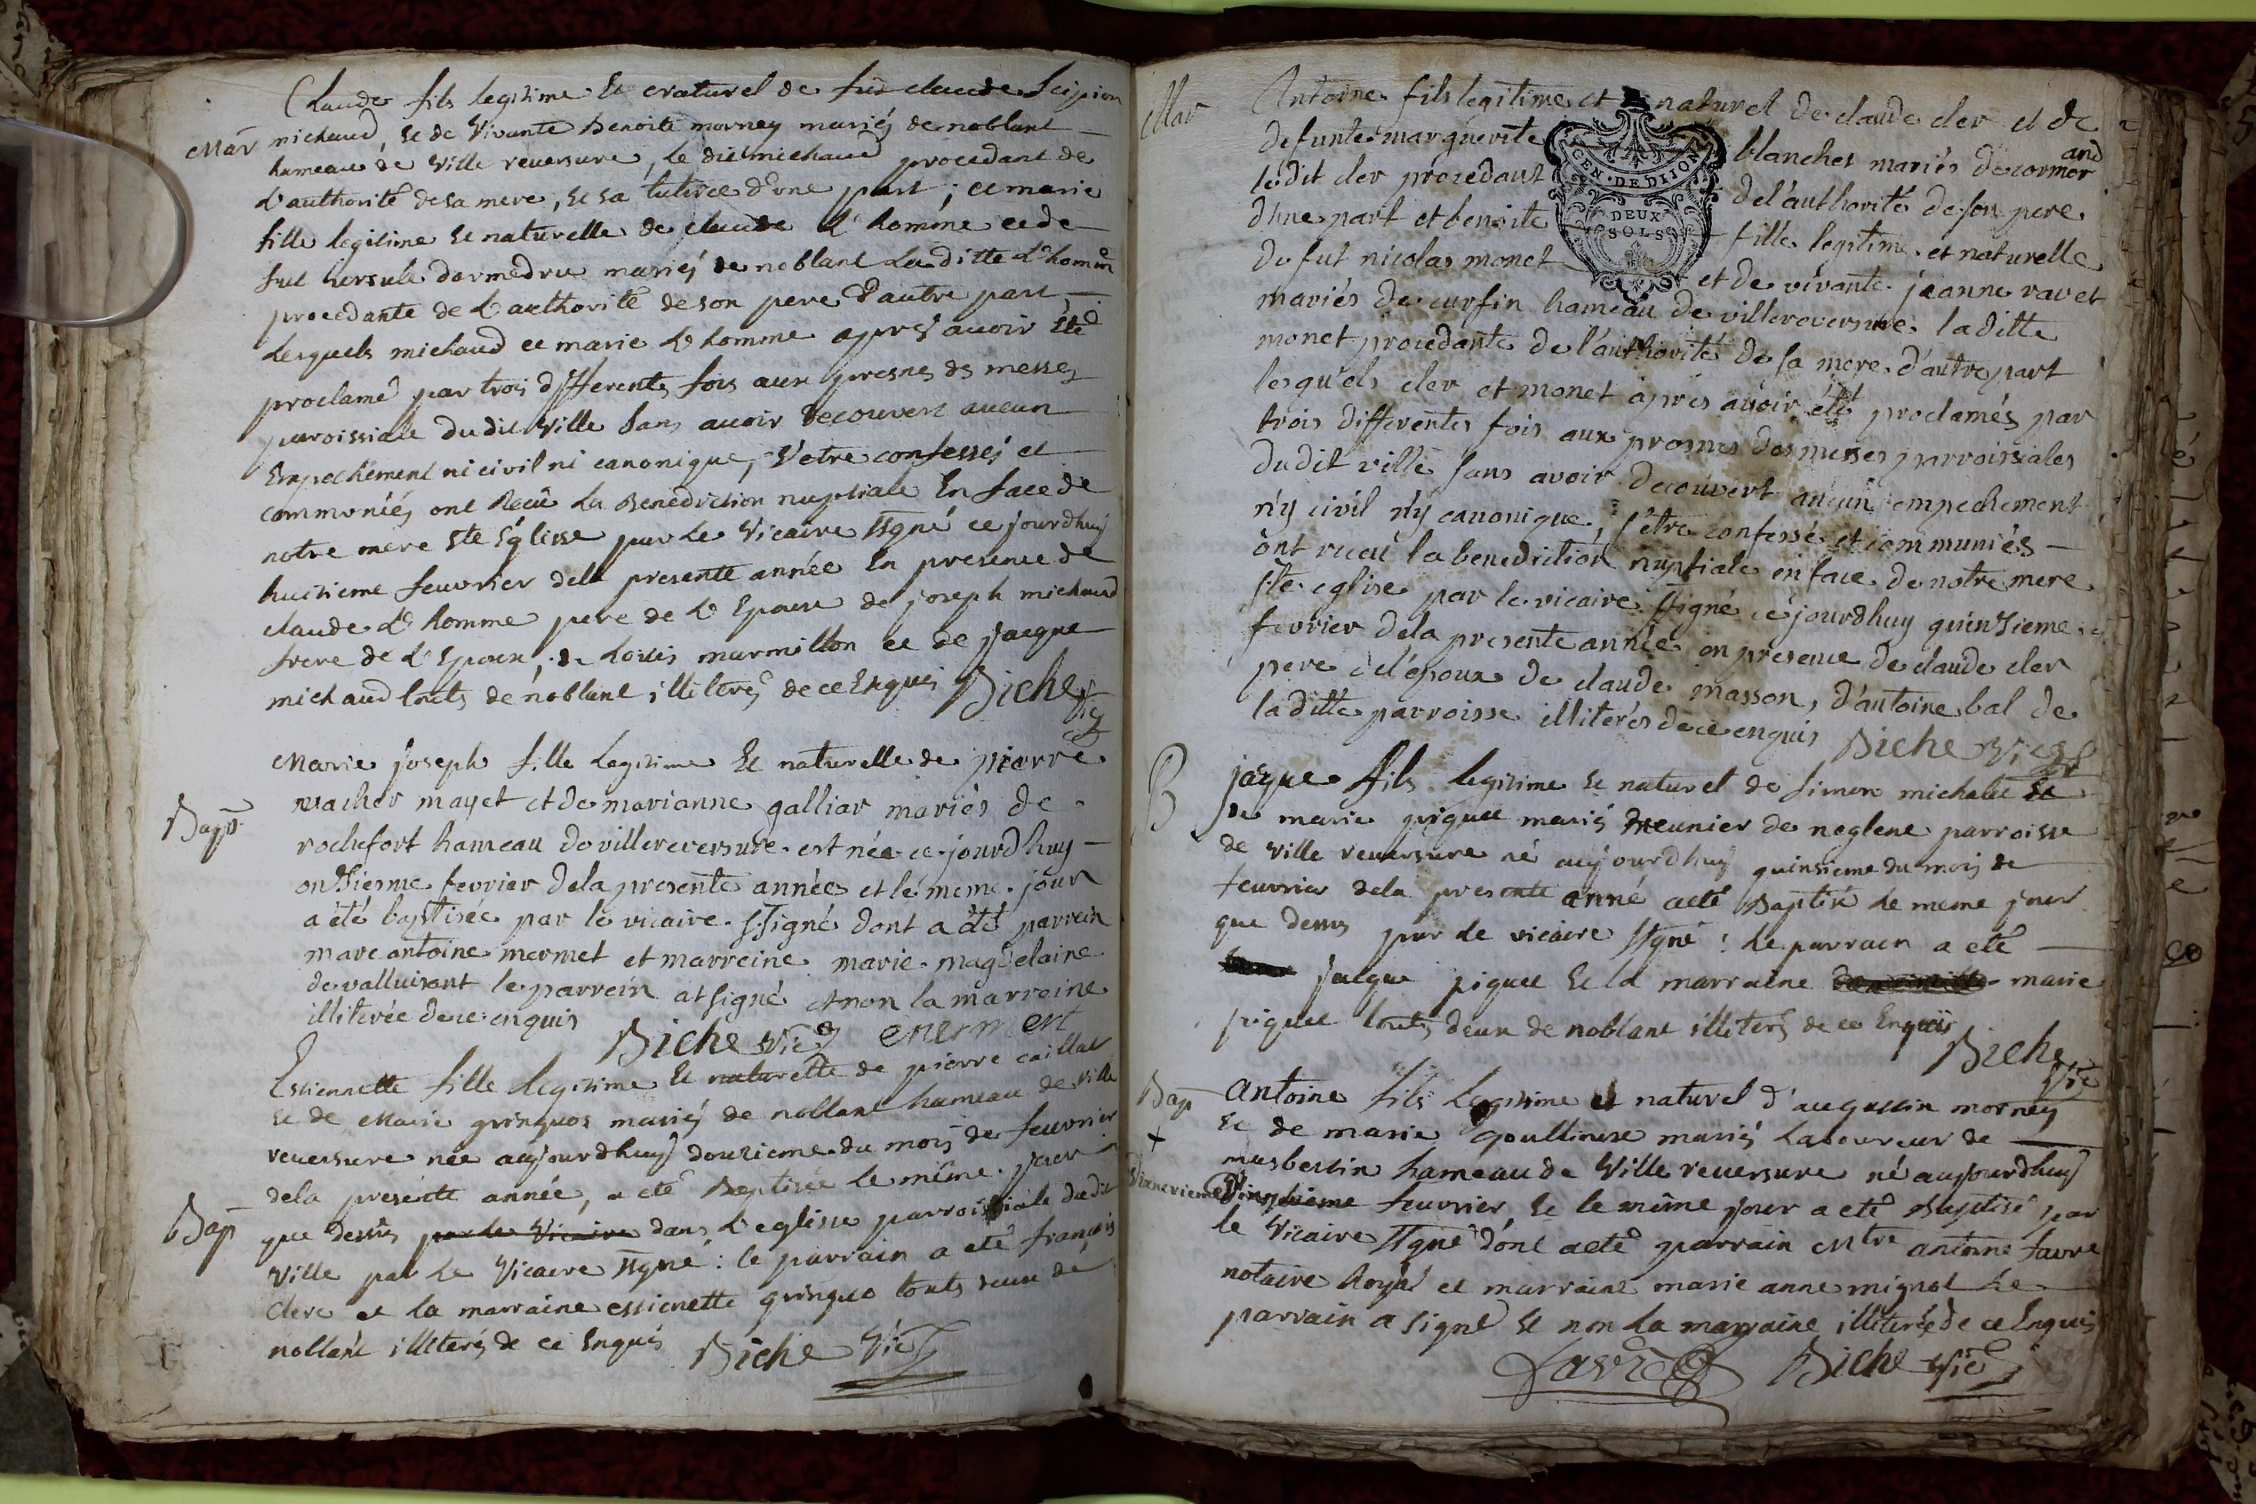 Claude fils legitime et naturel de fut claude Scipion
Mar michaud, et de Vivante Benoite morney mariés de noblant
hameau de Ville reversure, le dit michaud procedant de
l'authorité de sa mere, et sa tutrice d'une part; et marie
fille legitime et naturelle de claude L'homme et de
fut hersule dormedru mariés de noblant La ditte L'homme
procedante de L'authorité de son pere d'autre part
Lesquels michaud et marie L'homme apres avoir été
proclamé par trois differents fois aux prosnes ds messes
paroissiale dudit Ville sans avoir decouvert aucun
Empechement ni civil ni canonique, s'etre confessés et
communiés ont Receu La Benediction nuptiale En face de
notre mere Ste Eglisse par Le Vicaire ssigné ce jourdhuy
huitieme feuvrier dela presente année En presence de
claude L'homme pere de L'Epouse de joseph michaud
frere de L'Epoux, de Louis marmillon et de jacque
michaud touts de noblant illiterés de ce Enquis Biche
Vic
Marie joseph fille Legitime Et naturelle de pierre
Bapt macher mayet et de marianne galliar mariés de
rochefort hameau de villereversure est née ce jourdhuy
onzieme fevrier dela presente année et le meme jour
a été baptisée par le vicaire ssigné dont a été parrein
marc antoine mermet et marreine marie magdelaine
de valluisant le parrein at signé et non la marreine
illiterée de ce enquis Biche Vic mermet
Estiennette fille Legitime Et naturelle de pierre caillat
et de Marie grinquos mariés de noblant hameau de Ville
reuersure née aujourdhuy douzieme du mois de feuvrier
dela presente année, a eté Baptisée le même jour
Bap que dessus par le Vicaire dans L'eglisse parroissiale dudit
Ville par Le Vicaire ssigné: le parrain a eté françois
Clerc et la marraine essienette grinquo touts deux de
noblant illiterés de ce Enquis Biche Vic
Mar Antoine fils legitime et naturel de claude cler et de
defunte marguerite blanchet mariés de cormor
and
ledit cler procedant del'authorité de son pere
CEN. DE DIJON
DEUX
SOLS
d'une part et benoite fille legitime et naturelle
de fut nicolas monet et de vivante jeanne ravet
mariés de curfin hameau de villereversure ladite
monet procedante de l'authorité de sa mere d'autre part
lesquels cler et monet apres avoir été proclamés par
trois differentes fois aux prosnes des messes parroissiales
dudit ville sans avoir decouvert aucun empechement
n'y civil n'y canonique, s'être confessé et communiés
ont receu la benediction nuptiale en face de notre mere
ste eglise par le vicaire ssigné ce jourdhuy quinzieme
fevrier dela presente année en presence de claude cler
pere de l'epoux de claude masson, d'antoine bal de
laditte parroisse illiterés de ce enquis Biche Vic
B jacque fils legitime et naturel de simon michalet et
de marie piquet mariés meunier de noglene parroisse
de Ville reuersure né aujourdhuy quinsieme du mois de
feuvrier dela presente anné aeté Baptisé le meme jour
que dessus par le vicaire ssigné: le parrain a eté
jacque piquet et la marraine marie
piquet touts deux de noblant illiterés de ce Enquis
Biche
Vic
Bap Antoine fils Legitime et naturel d'augustin morney
+ et de marie goultiere mariés Laboureur de
musbestin hameau de Ville reuersure né aujourdhuy
vingtieme feuvrier et le même jour a eté Baptisé par
le Vicaire ssigné dont aeté parrain Mtre antoine favre
notaire Royal et marraine marie anne mignot Le
parrain a signé et non La marraine illiterée de ce Enquis
favre Biche Vic